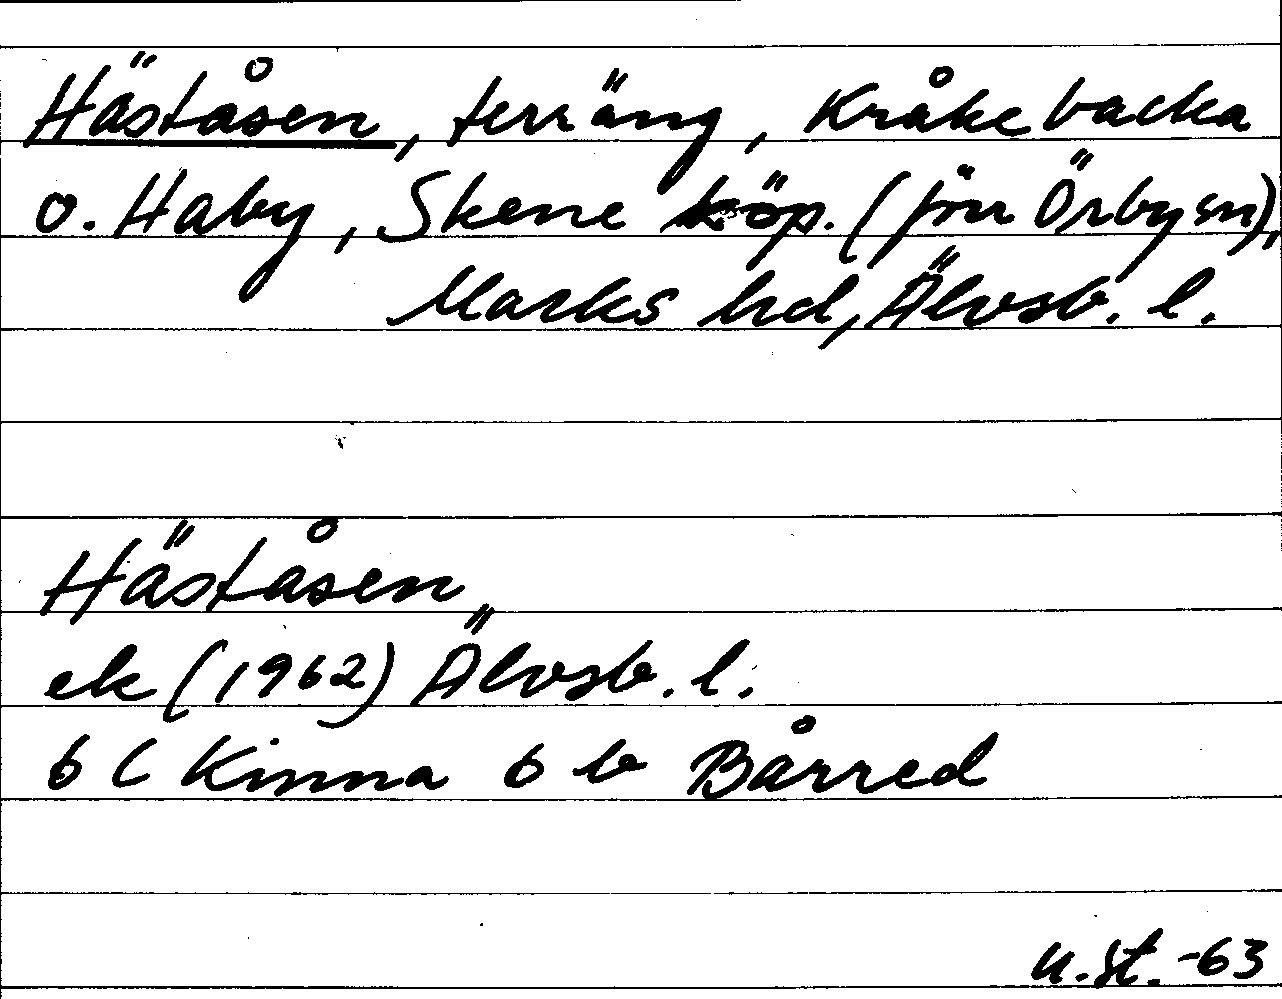 Häståsen, terräng, Kråkebacka
o. Haby, Skene köp. (förr Örby sn),
Marks hd, Älvsb. l.
Häståsen
ek (1962) Älvsb. l.
6 C Kinna 6 b Bårred
u.st. -63